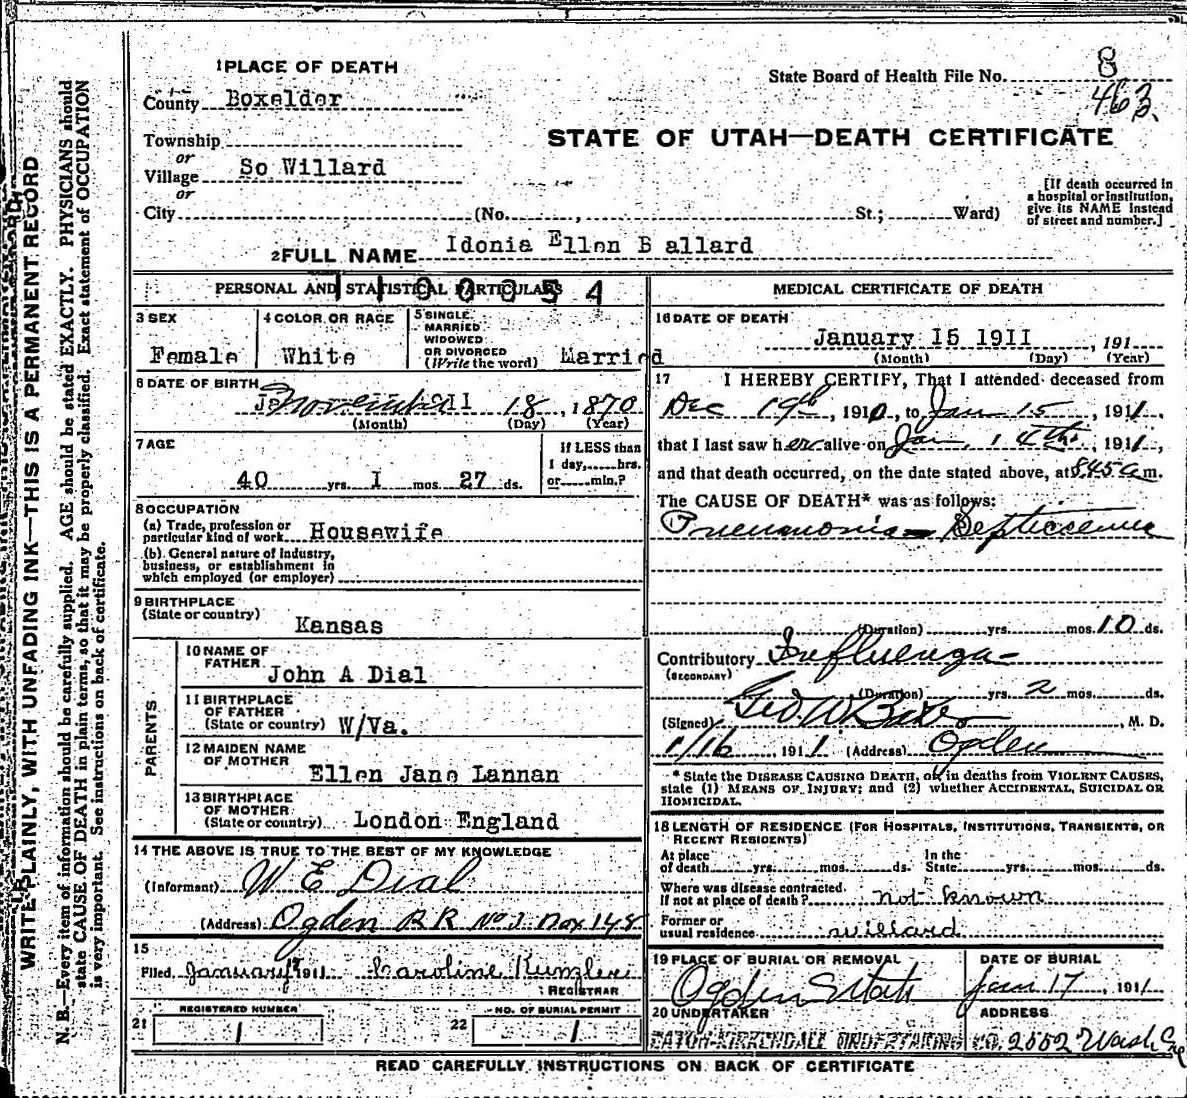 1 PLACE OF DEATH
State Board of Health File No. 8
463.
County Boxelder
STATE OF UTAH—DEATH CERTIFICATE
Township
or
Village So Willard
or
City (No. , St.; Ward)
[If death occurred in
a hospital or institution,
give its NAME instead
of street and number.]
2 FULL NAME Idonia Ellen B allard
PERSONAL AND STATISTICAL PARTICULARS
3 SEX
Female
4 COLOR OR RACE
White
5 SINGLE
MARRIED
WIDOWED
OR DIVORCED
(Write the word) Married
6 DATE OF BIRTH
November 18, 1870
(Month) (Day) (Year)
7 AGE
40 yrs. I mos. 27 ds.
If LESS than
1 day, hrs.
or min.?
8 OCCUPATION
(a) Trade, profession or
particular kind of work Housewife
(b) General nature of Industry,
business, or establishment in
which employed (or employer)
9 BIRTHPLACE
(State or country)
Kansas
PARENTS
10 NAME OF
FATHER John A Dial
11 BIRTHPLACE
OF FATHER
(State or country) W/Va.
12 MAIDEN NAME
OF MOTHER
Ellen Jane Lannan
13 BIRTHPLACE
OF MOTHER
(State or country) London England
14 THE ABOVE IS TRUE TO THE BEST OF MY KNOWLEDGE
(Informant) W E Dial
(Address) Ogden RR No 1 Box 148
15
Filed January 17 1911 Caroline Kunzler
REGISTRAR
REGISTERED NUMBER
21 1
NO. OF BURIAL PERMIT
22 1
MEDICAL CERTIFICATE OF DEATH
16 DATE OF DEATH
January I5 1911 , 191
(Month) (Day) (Year)
17 I HEREBY CERTIFY, That I attended deceased from
Dec 19th, 1910, to Jan 15, 1911,
that I last saw her alive on Jan. 14th, 1911,
and that death occurred, on the date stated above, at 845 a m.
The CAUSE OF DEATH* was as follows:
Pneumonia – Septicemia
(Duration) yrs. mos. 10 ds.
Contributory Influenza
(SECONDARY)
(Duration) yrs. 2 mos. ds.
(Signed) Geo W Baker, M. D.
1/16, 1911 (Address) Ogden
* State the DISEASE CAUSING DEATH, or, in deaths from VIOLENT CAUSES,
state (1) MEANS OF INJURY; and (2) whether ACCIDENTAL, SUICIDAL OR
HOMICIDAL.
18 LENGTH OF RESIDENCE (FOR HOSPITALS, INSTITUTIONS, TRANSIENTS, OR
RECENT RESIDENTS)
At place
of death yrs. mos. ds.
In the
State yrs. mos. ds.
Where was disease contracted,
If not at place of death? not known
Former or
usual residence willard
19 PLACE OF BURIAL OR REMOVAL
Ogden Utah
DATE OF BURIAL
Jan 17, 1911
20 UNDERTAKER
ADDRESS
EATON-KIRKENDALL UNDERTAKING CO. 2552 Wash Ave
READ CAREFULLY INSTRUCTIONS ON BACK OF CERTIFICATE
WRITE PLAINLY, WITH UNFADING INK—THIS IS A PERMANENT RECORD
N. B.—Every item of information should be carefully supplied. AGE should be stated EXACTLY. PHYSICIANS should
state CAUSE OF DEATH in plain terms, so that it may be properly classified. Exact statement of OCCUPATION
is very important. See instructions on back of certificate.